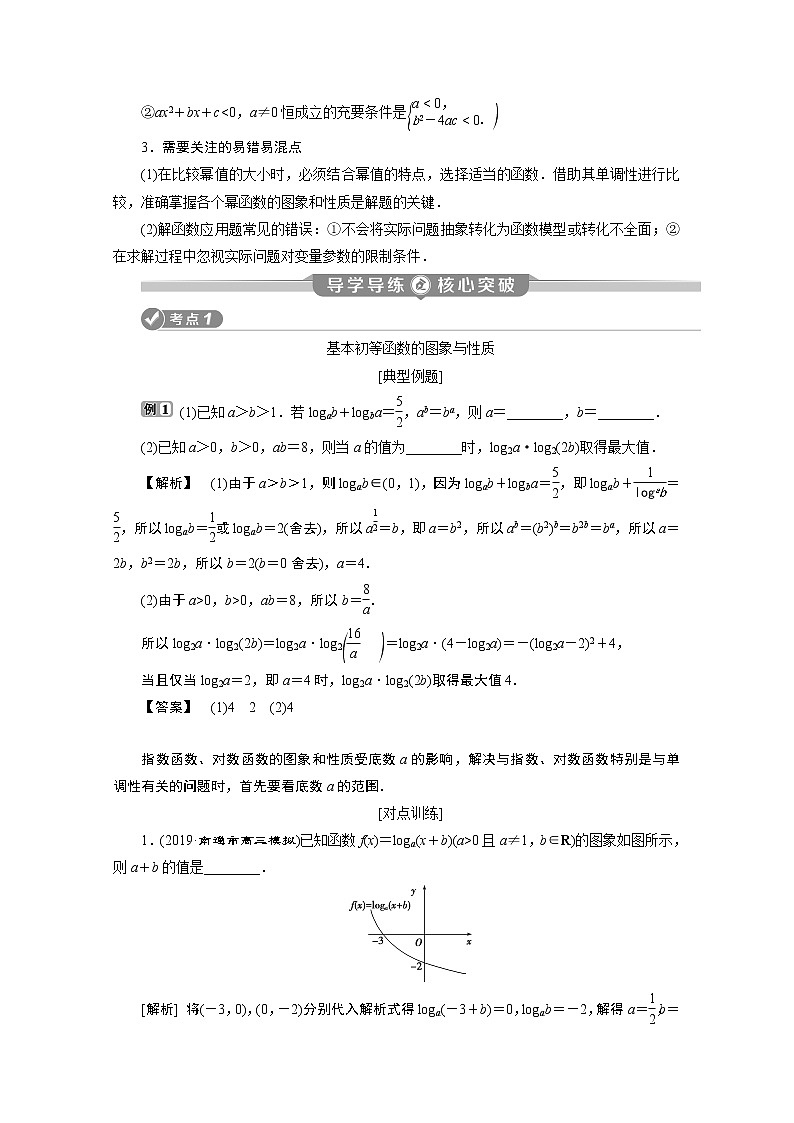 ②ax²+bx+c<0，a≠0恒成立的充要条件是{a<0，b²-4ac<0.
3．需要关注的易错易混点
(1)在比较幂值的大小时，必须结合幂值的特点，选择适当的函数．借助其单调性进行比
较，准确掌握各个幂函数的图象和性质是解题的关键．
(2)解函数应用题常见的错误：①不会将实际问题抽象转化为函数模型或转化不全面；②
在求解过程中忽视实际问题对变量参数的限制条件．
导学导练 2 核心突破
考点1
基本初等函数的图象与性质
[典型例题]
例1 (1)已知a＞b＞1．若logₐb＋log_b a＝5/2，aᵇ＝bᵃ，则a＝________，b＝________．
(2)已知a＞0，b＞0，ab＝8，则当a的值为________时，log₂a·log₂(2b)取得最大值．
【解析】 (1)由于a＞b＞1，则logₐb∈(0，1)，因为logₐb＋log_b a＝5/2，即logₐb＋1/logₐb＝
5/2，所以logₐb＝1/2或logₐb＝2(舍去)，所以a^(1/2)＝b，即a＝b²，所以aᵇ＝(b²)ᵇ＝b²ᵇ＝bᵃ，所以a＝
2b，b²＝2b，所以b＝2(b＝0舍去)，a＝4．
(2)由于a>0，b>0，ab＝8，所以b＝8/a．
所以log₂a·log₂(2b)＝log₂a·log₂(16/a)＝log₂a·(4－log₂a)＝－(log₂a－2)²＋4，
当且仅当log₂a＝2，即a＝4时，log₂a·log₂(2b)取得最大值4．
【答案】 (1)4 2 (2)4
指数函数、对数函数的图象和性质受底数a的影响，解决与指数、对数函数特别是与单
调性有关的问题时，首先要看底数a的范围．
[对点训练]
1．(2019·南通市高三模拟)已知函数f(x)＝logₐ(x＋b)(a>0且a≠1，b∈R)的图象如图所示，
则a＋b的值是________．
y
f(x)=logₐ(x+b)
−3 O x
−2
[解析] 将(－3，0)，(0，－2)分别代入解析式得logₐ(－3＋b)＝0，logₐb＝－2，解得a＝1/2，b＝